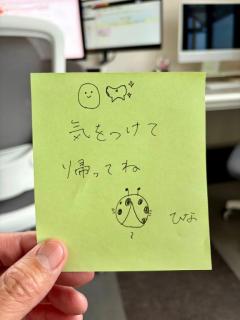 気をつけて
帰ってね
ひな